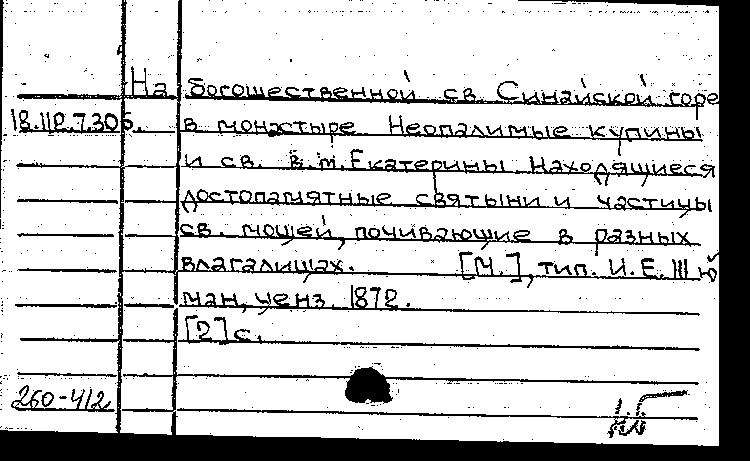 На богошественной св. Синайской горе
18.112.7.306. в монастыре Неопалимые купины
и св. в.м. Екатерины находящиеся
достопамятные святыни и частицы
св. мощей, почивающие в разных
влагалищах. [М.], тип. И.Е. Шю
ман, ценз. 1872.
[2] с.
260-412